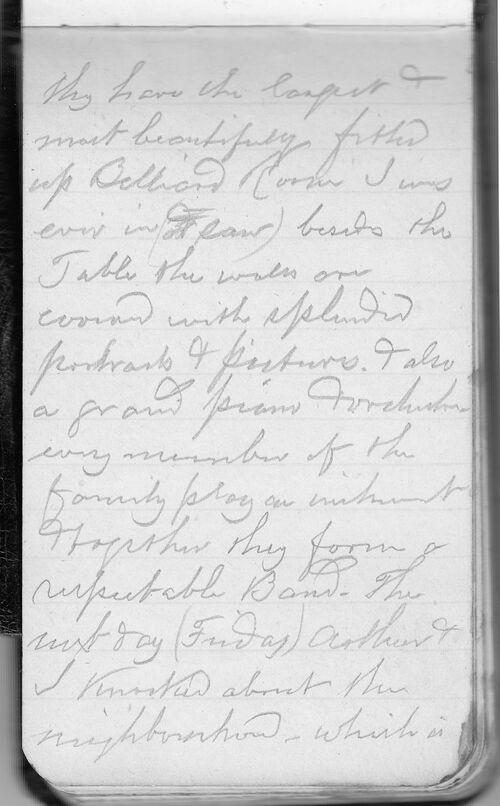 they have the largest &
most beautifully fitted
up Billiard Room I was
ever in (saw) besids the
Table the walls are
covered with splendid
portraits & pictures. & also
a grand piano & orchestra
every member of the
family play an instrument
& together they form a
respectable Band - The
next day (Friday) Arthur &
I knocked about the
neighbourhood - which is